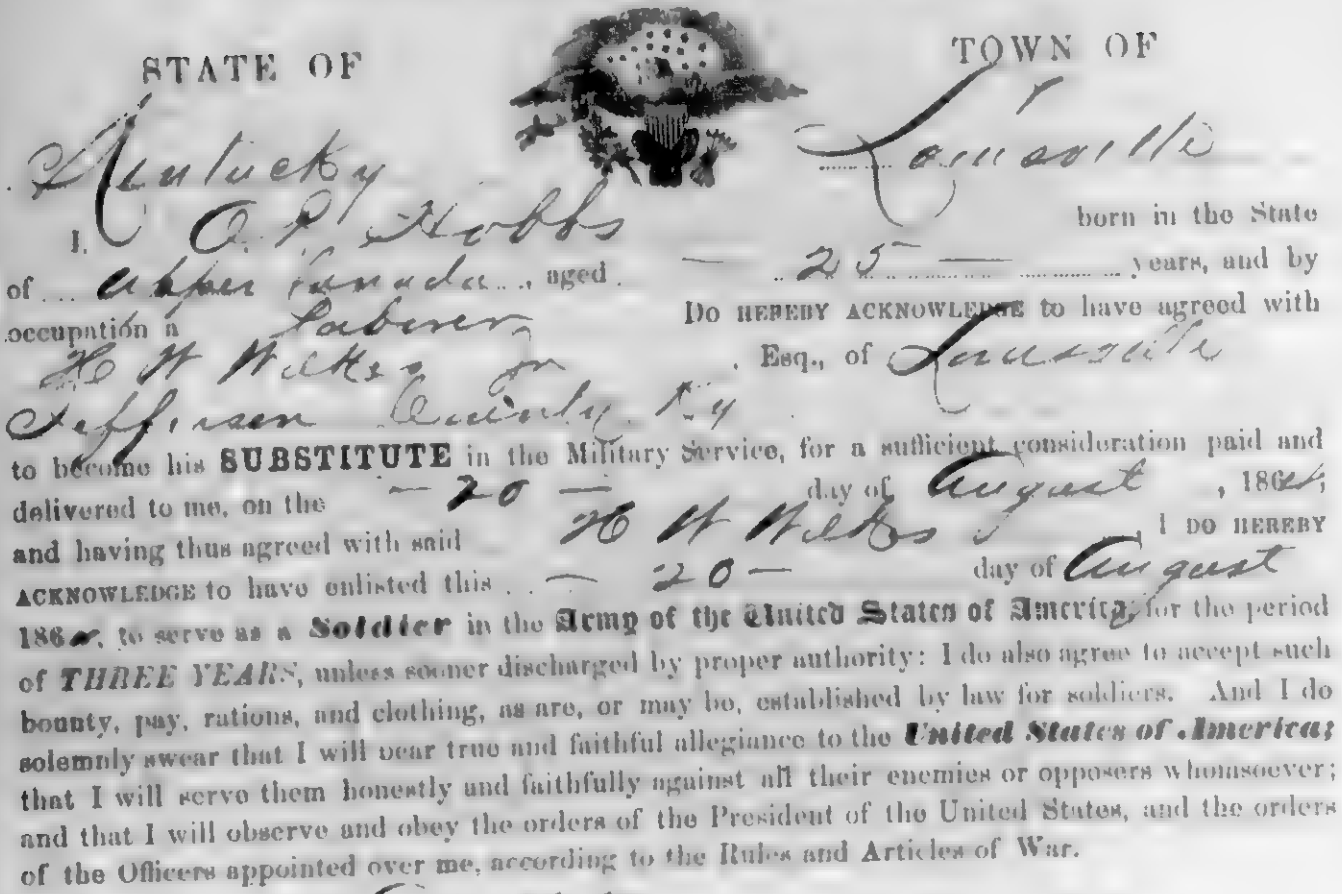 STATE OF
TOWN OF
Kentucky
Louisville
I, O. P. Hobbs born in the State
of Upper Canada, aged 25 years, and by
occupation a Laborer Do HEREBY ACKNOWLEDGE to have agreed with
H W Wilkes Jr, Esq., of Louisville
Jefferson County Ky
to become his SUBSTITUTE in the Military Service, for a sufficient consideration paid and
delivered to me, on the — 20 — day of August, 1864,
and having thus agreed with said H W Wilkes J, I DO HEREBY
ACKNOWLEDGE to have enlisted this — 20 — day of August
1864, to serve as a Soldier in the Army of the United States of America, for the period
of THREE YEARS, unless sooner discharged by proper authority: I do also agree to accept such
bounty, pay, rations, and clothing, as are, or may be, established by law for soldiers. And I do
solemnly swear that I will bear true and faithful allegiance to the United States of America;
that I will serve them honestly and faithfully against all their enemies or opposers whomsoever;
and that I will observe and obey the orders of the President of the United States, and the orders
of the Officers appointed over me, according to the Rules and Articles of War.